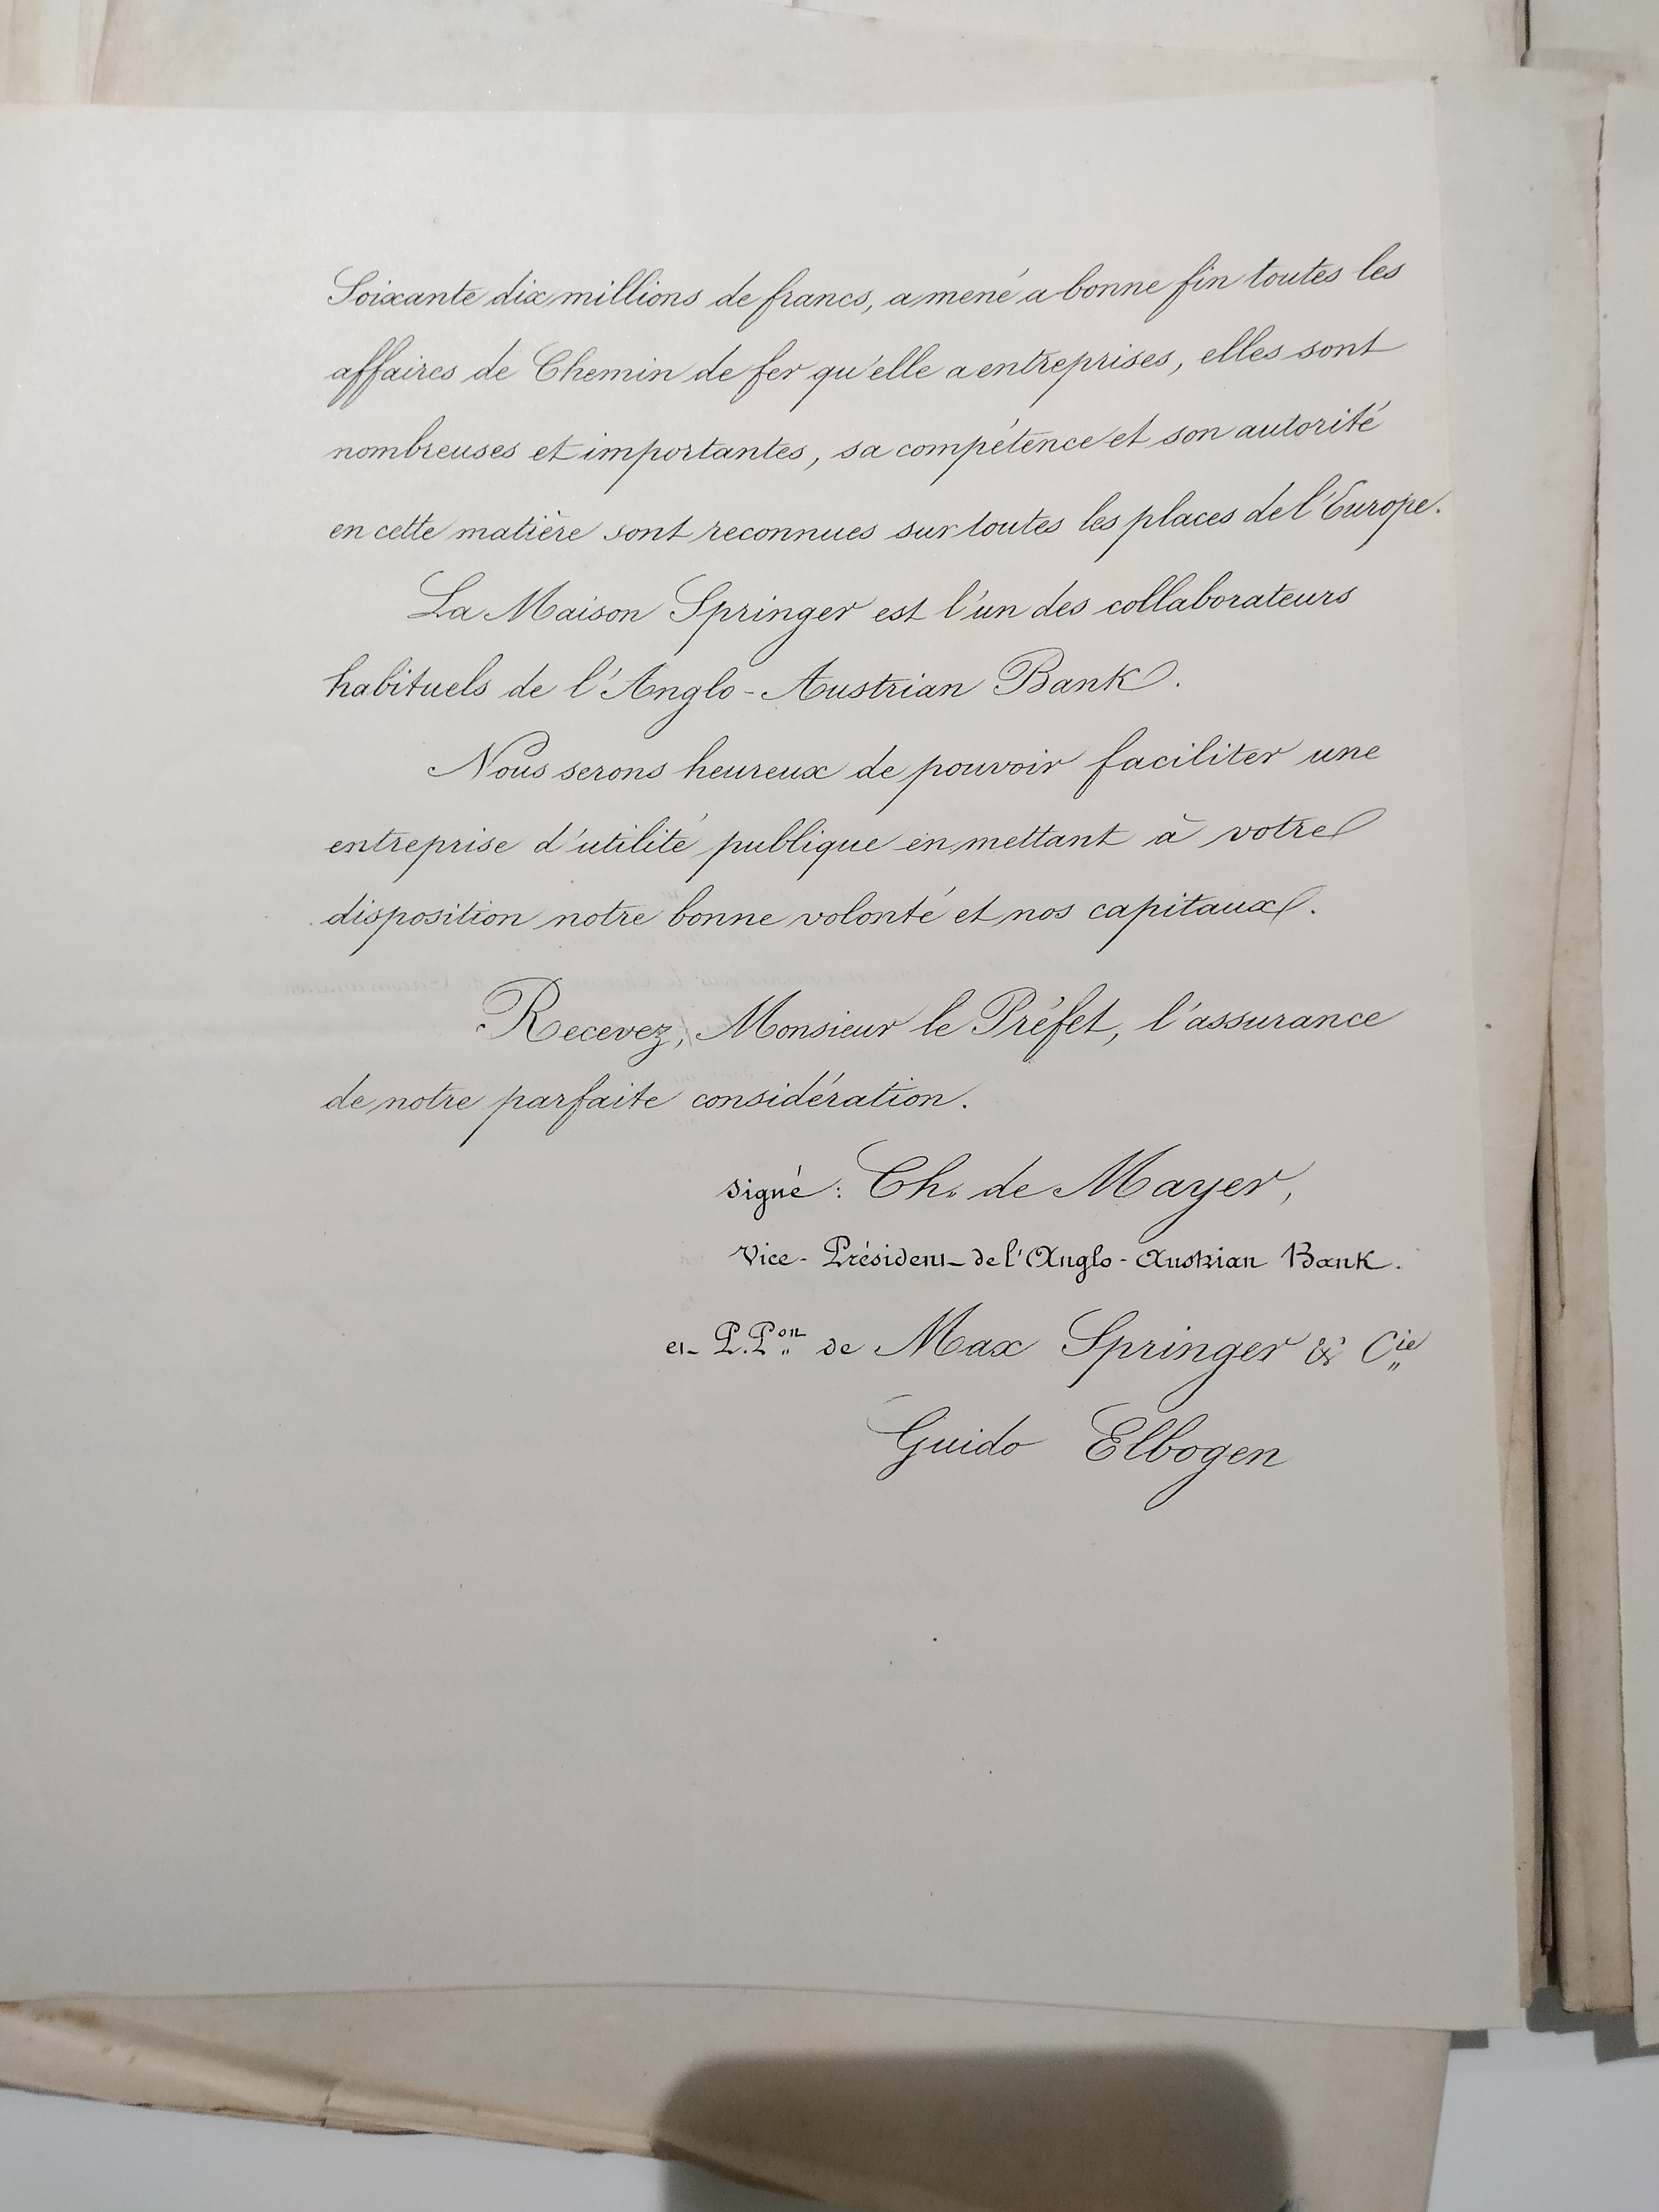 Soixante dix millions de francs, a mené a bonne fin toutes les
affaires de Chemin de fer qu'elle a entreprises, elles sont
nombreuses et importantes, sa compétence et son autorité
en cette matière sont reconnues sur toutes les places de l'Europe.
La Maison Springer est l'un des collaborateurs
habituels de l'Anglo-Austrian Bank.
Nous serons heureux de pouvoir faciliter une
entreprise d'utilité publique en mettant à votre
disposition notre bonne volonté et nos capitaux.
Recevez, Monsieur le Préfet, l'assurance
de notre parfaite considération.
signé: Ch. de Mayer,
Vice-Président de l'Anglo-Austrian Bank.
et P.Pon de Max Springer & Cie
Guido Elbogen